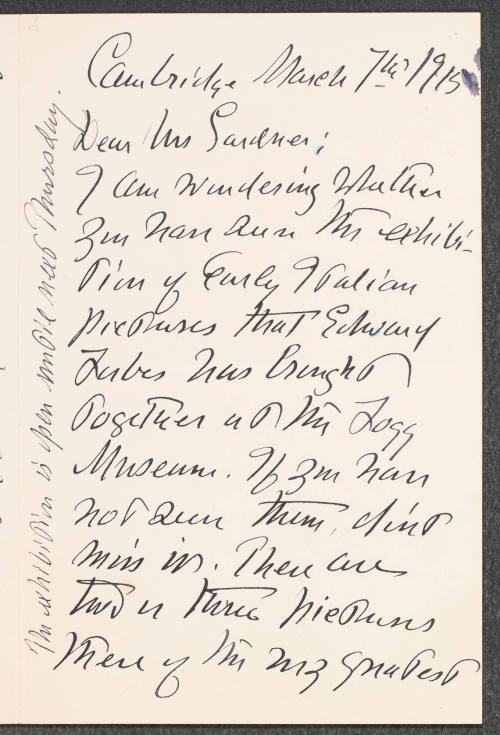 Cambridge March 7th 1915
Dear Mrs Gardner;
I am wondering whether
you have seen the exhibi-
tion of Early Italian
pictures that Edward
Forbes has brought
together at the Fogg
Museum. If you have
not seen them, don't
miss it. There are
two or three pictures
there of the very greatest
The exhibition is open until next Thursday.